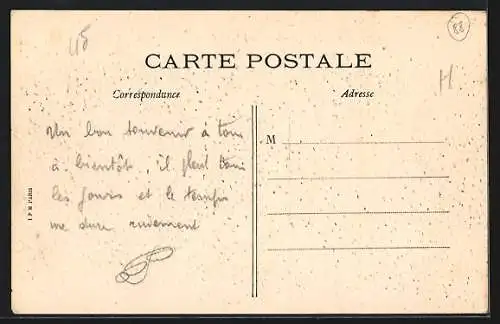 45
88
CARTE POSTALE
H
Correspondance
Adresse
Un bon souvenir à tous
M
à bientôt, il pleut tous
les jours et le temps
me dure rudement
I P M PARIS